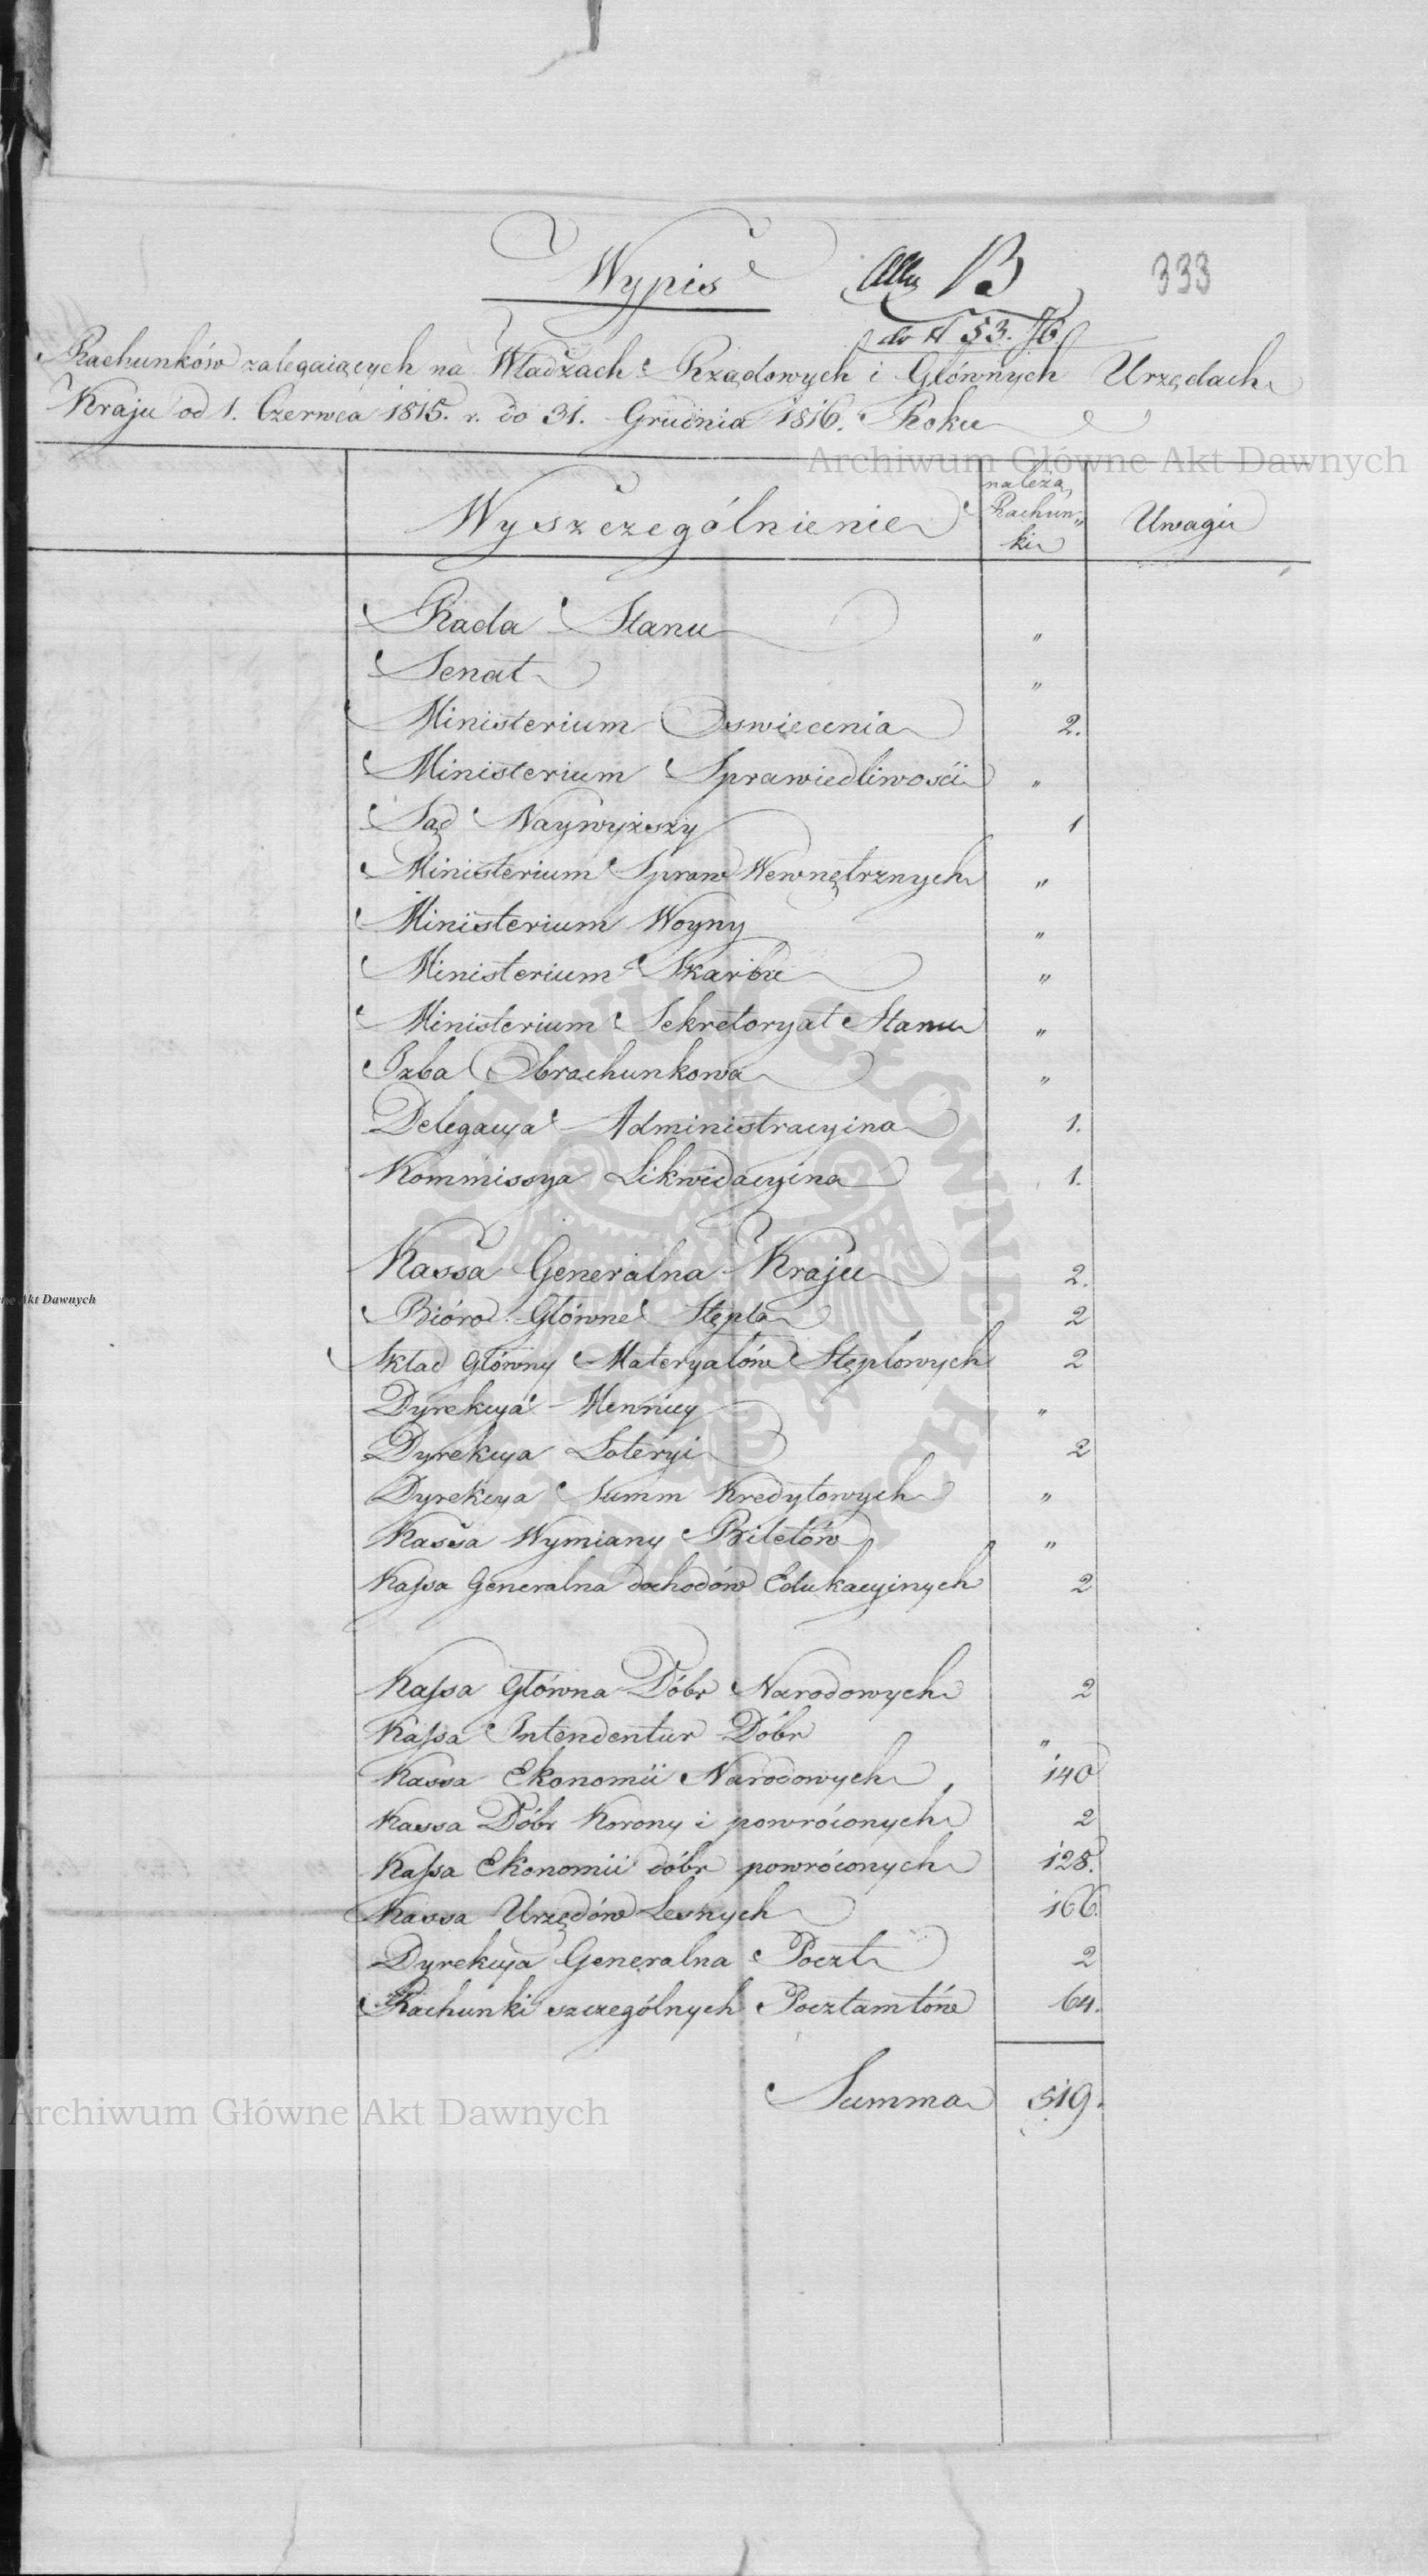 Wypis
B
333
do N 53. 76
Rachunków zalegaiących na Władzach Rządowych i Głównych Urzędach
Kraju od 1. Czerwca 1815. r. do 31. Grudnia 1816. Roku
Archiwum Główne Akt Dawnych
Wyszczególnienie
należą
Rachun„
ki
Uwagi
Rada Stanu „
Senat „
Ministerium Oswiecenia 2.
Ministerium Sprawiedliwości „
Sąd Naywyższy 1
Ministerium Spraw Wewnętrznych „
Ministerium Woyny „
Ministerium Skarbu „
Ministerium Sekretoryat Stanu „
Izba Obrachunkowa „
Delegacya Administracyina 1.
Kommissya Likwidacyina 1.
Kassa Generalna Kraju 2.
Bióro Główne Stępla 2
Skład Główny Materyałów Stęplowych 2
Dyrekcya Mennicy „
Dyrekcya Loteryi 2
Dyrekcya Summ Kredytowych „
Kassa Wymiany Biletów „
Kassa Generalna dochodów Edukacyinych 2
Kassa Główna Dóbr Narodowych 2
Kassa Intendentur Dóbr „
Kassa Ekonomii Narodowych 140
Kassa Dóbr Korony i powróconych 2
Kassa Ekonomii dóbr powróconych 128.
Kassa Urzędów Lesnych 166.
Dyrekcya Generalna Poczt 2
Rachunki szczególnych Pocztamtów 64.
Summa 519.
Archiwum Główne Akt Dawnych
ARCHIWUM GŁÓWNE AKT DAWNYCH
Akt Dawnych